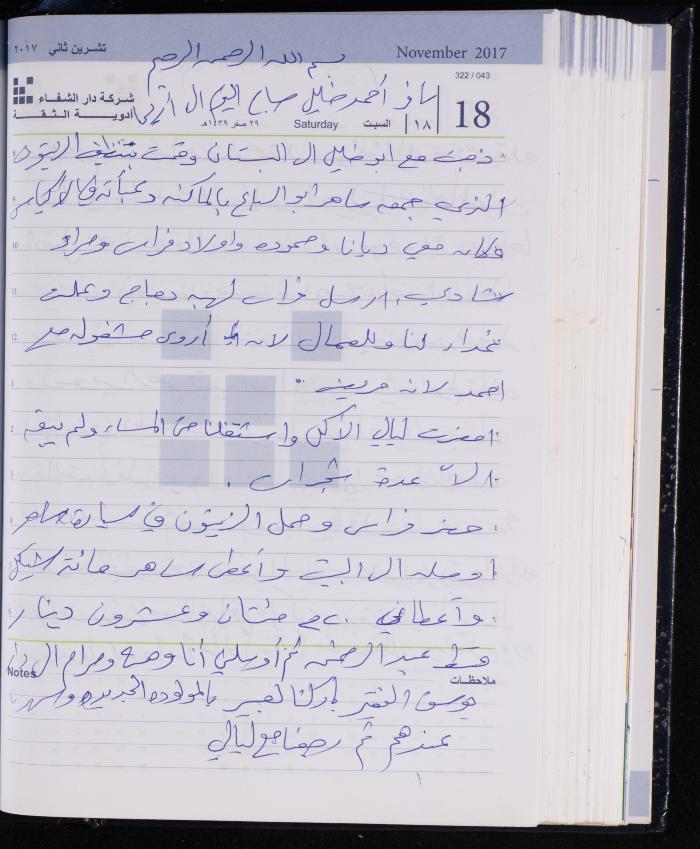 تشرين ثاني ٢٠١٧
November 2017
بسم الله الرحمن الرحيم
322 / 043
شركة دار الشفاء
لأدوية الثقة
سافر أحمد خليل صباح اليوم الى
٢٩ صفر ١٤٣٩هـ Saturday السبت ١٨ 18
ذهبت مع ابو خليل الى البستان وقمت بتنظيف الزيتون
الذي جمعه ساهر ابو السباع بالماكنة وعبأته في الاكياس
وكان معي ديانا وحموده واولاد فراس ومراد
شادي، ارسل فراس لهبه دجاج وعملت
غداء لنا وللعمال لان أروى مشغولة مع
احمد لانه مريض
احضرت ليالي الاكل واشتغلنا حتى المساء ولم يبق
الا عدة شجرات .
حضر فراس وحمل الزيتون في سيارة ساهر
اوصله الى البيت وأعطى ساهر مائة شيكل
وأعطاني ٢٢٠ مئتان وعشرون دينار
قسط عبد الرحمن ثم أوصلني أنا وهبة ومرام الى دار
Notes ملاحظات
يوسف الفقير باركنا لعبير بالمولودة الجديدة وسهرنا
عندهم ثم رجعنا مع ليالي